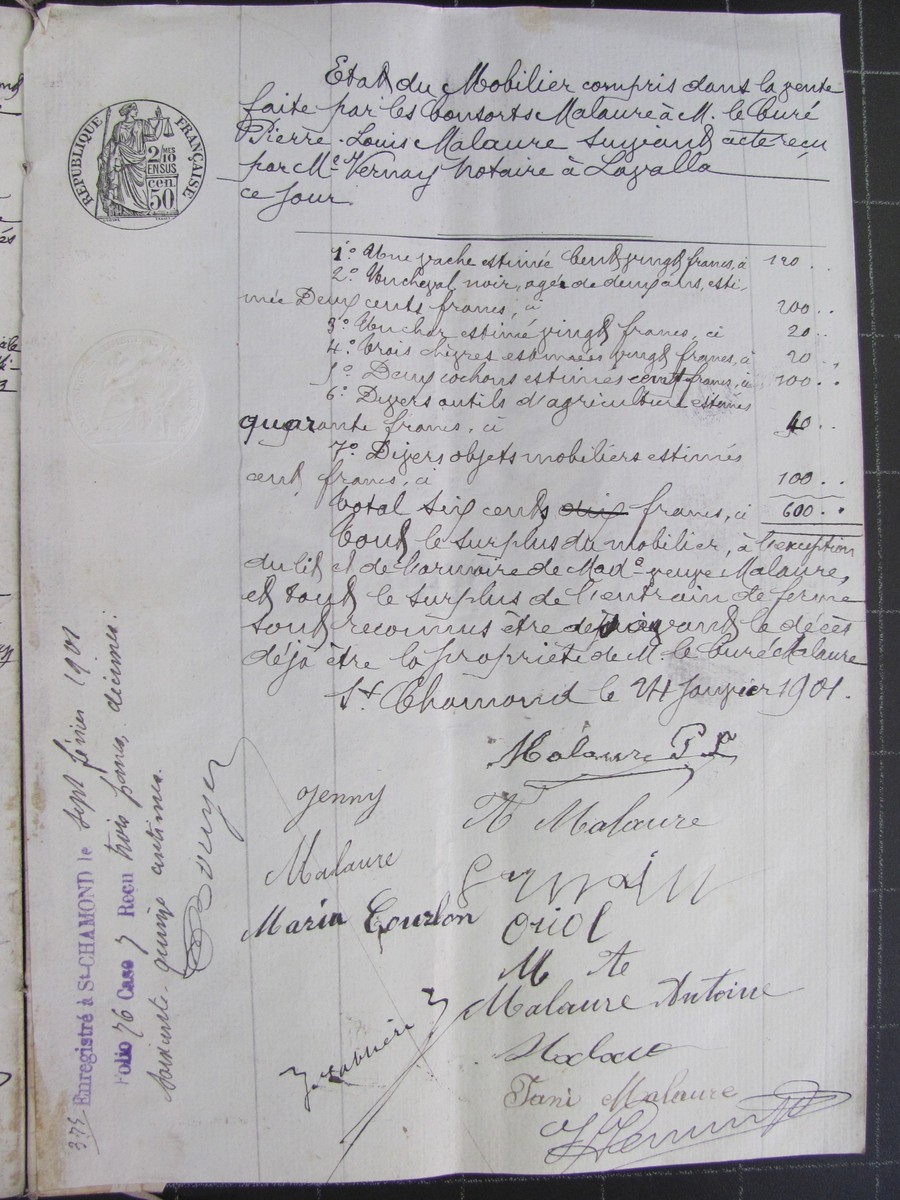 RÉPUBLIQUE FRANÇAISE
2/10
EN SUS
50
cen.
Etat du Mobilier compris dans la vente
faite par les Consorts Malaure à M. le Curé
Pierre-Louis Malaure suivant acte reçu
par Me Vernay Notaire à Lavalla
ce jour
1° Une vache estimée Cent vingt francs, ci 120 ..
2° Un cheval noir, agé de deux ans, esti-
mée Deux cents francs, ci 200 ..
3° Un char estimé vingt francs, ci 20 ..
4° Trois chèvres estimées vingt francs, ci 20 ..
5° Deux cochons estimés cent francs, ci 100 ..
6° Divers outils d'agriculture estimés
quarante francs, ci 40 ..
7° Divers objets mobiliers estimés
cent francs, ci 100 ..
Total Six cents francs, ci 600 ..
Tout le surplus du mobilier, à l'exception
du lit et de l'armoire de Made veuve Malaure,
et tout le surplus de l'entrain de ferme
sont reconnus être avant le décès
déjà être la propriété de M. le Curé Malaure
St Chamond le 24 Janvier 1901.
Malaure P. L.
Jenny
A Malaure
Malaure
Germain
Marie Courbon
Oriol
M A
Malaure Antoine
Malaure
Fani Malaure
Enregistré à St-CHAMOND le sept février 1901
Folio 76 Case 7 Reçu trois francs, décimes
soixante-quinze centimes.
3.75